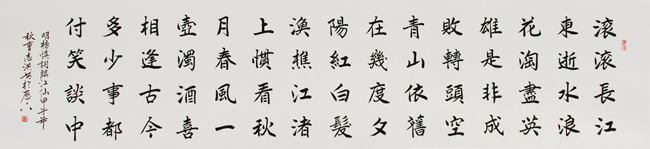 滾滾長江
東逝水浪
花淘盡英
雄是非成
敗轉頭空
青山依舊
在幾度夕
陽紅白髮
漁樵江渚
上慣看秋
月春風一
壺濁酒喜
相逢古今
多少事都
付笑談中
明楊慎詞臨江仙甲午年
秋